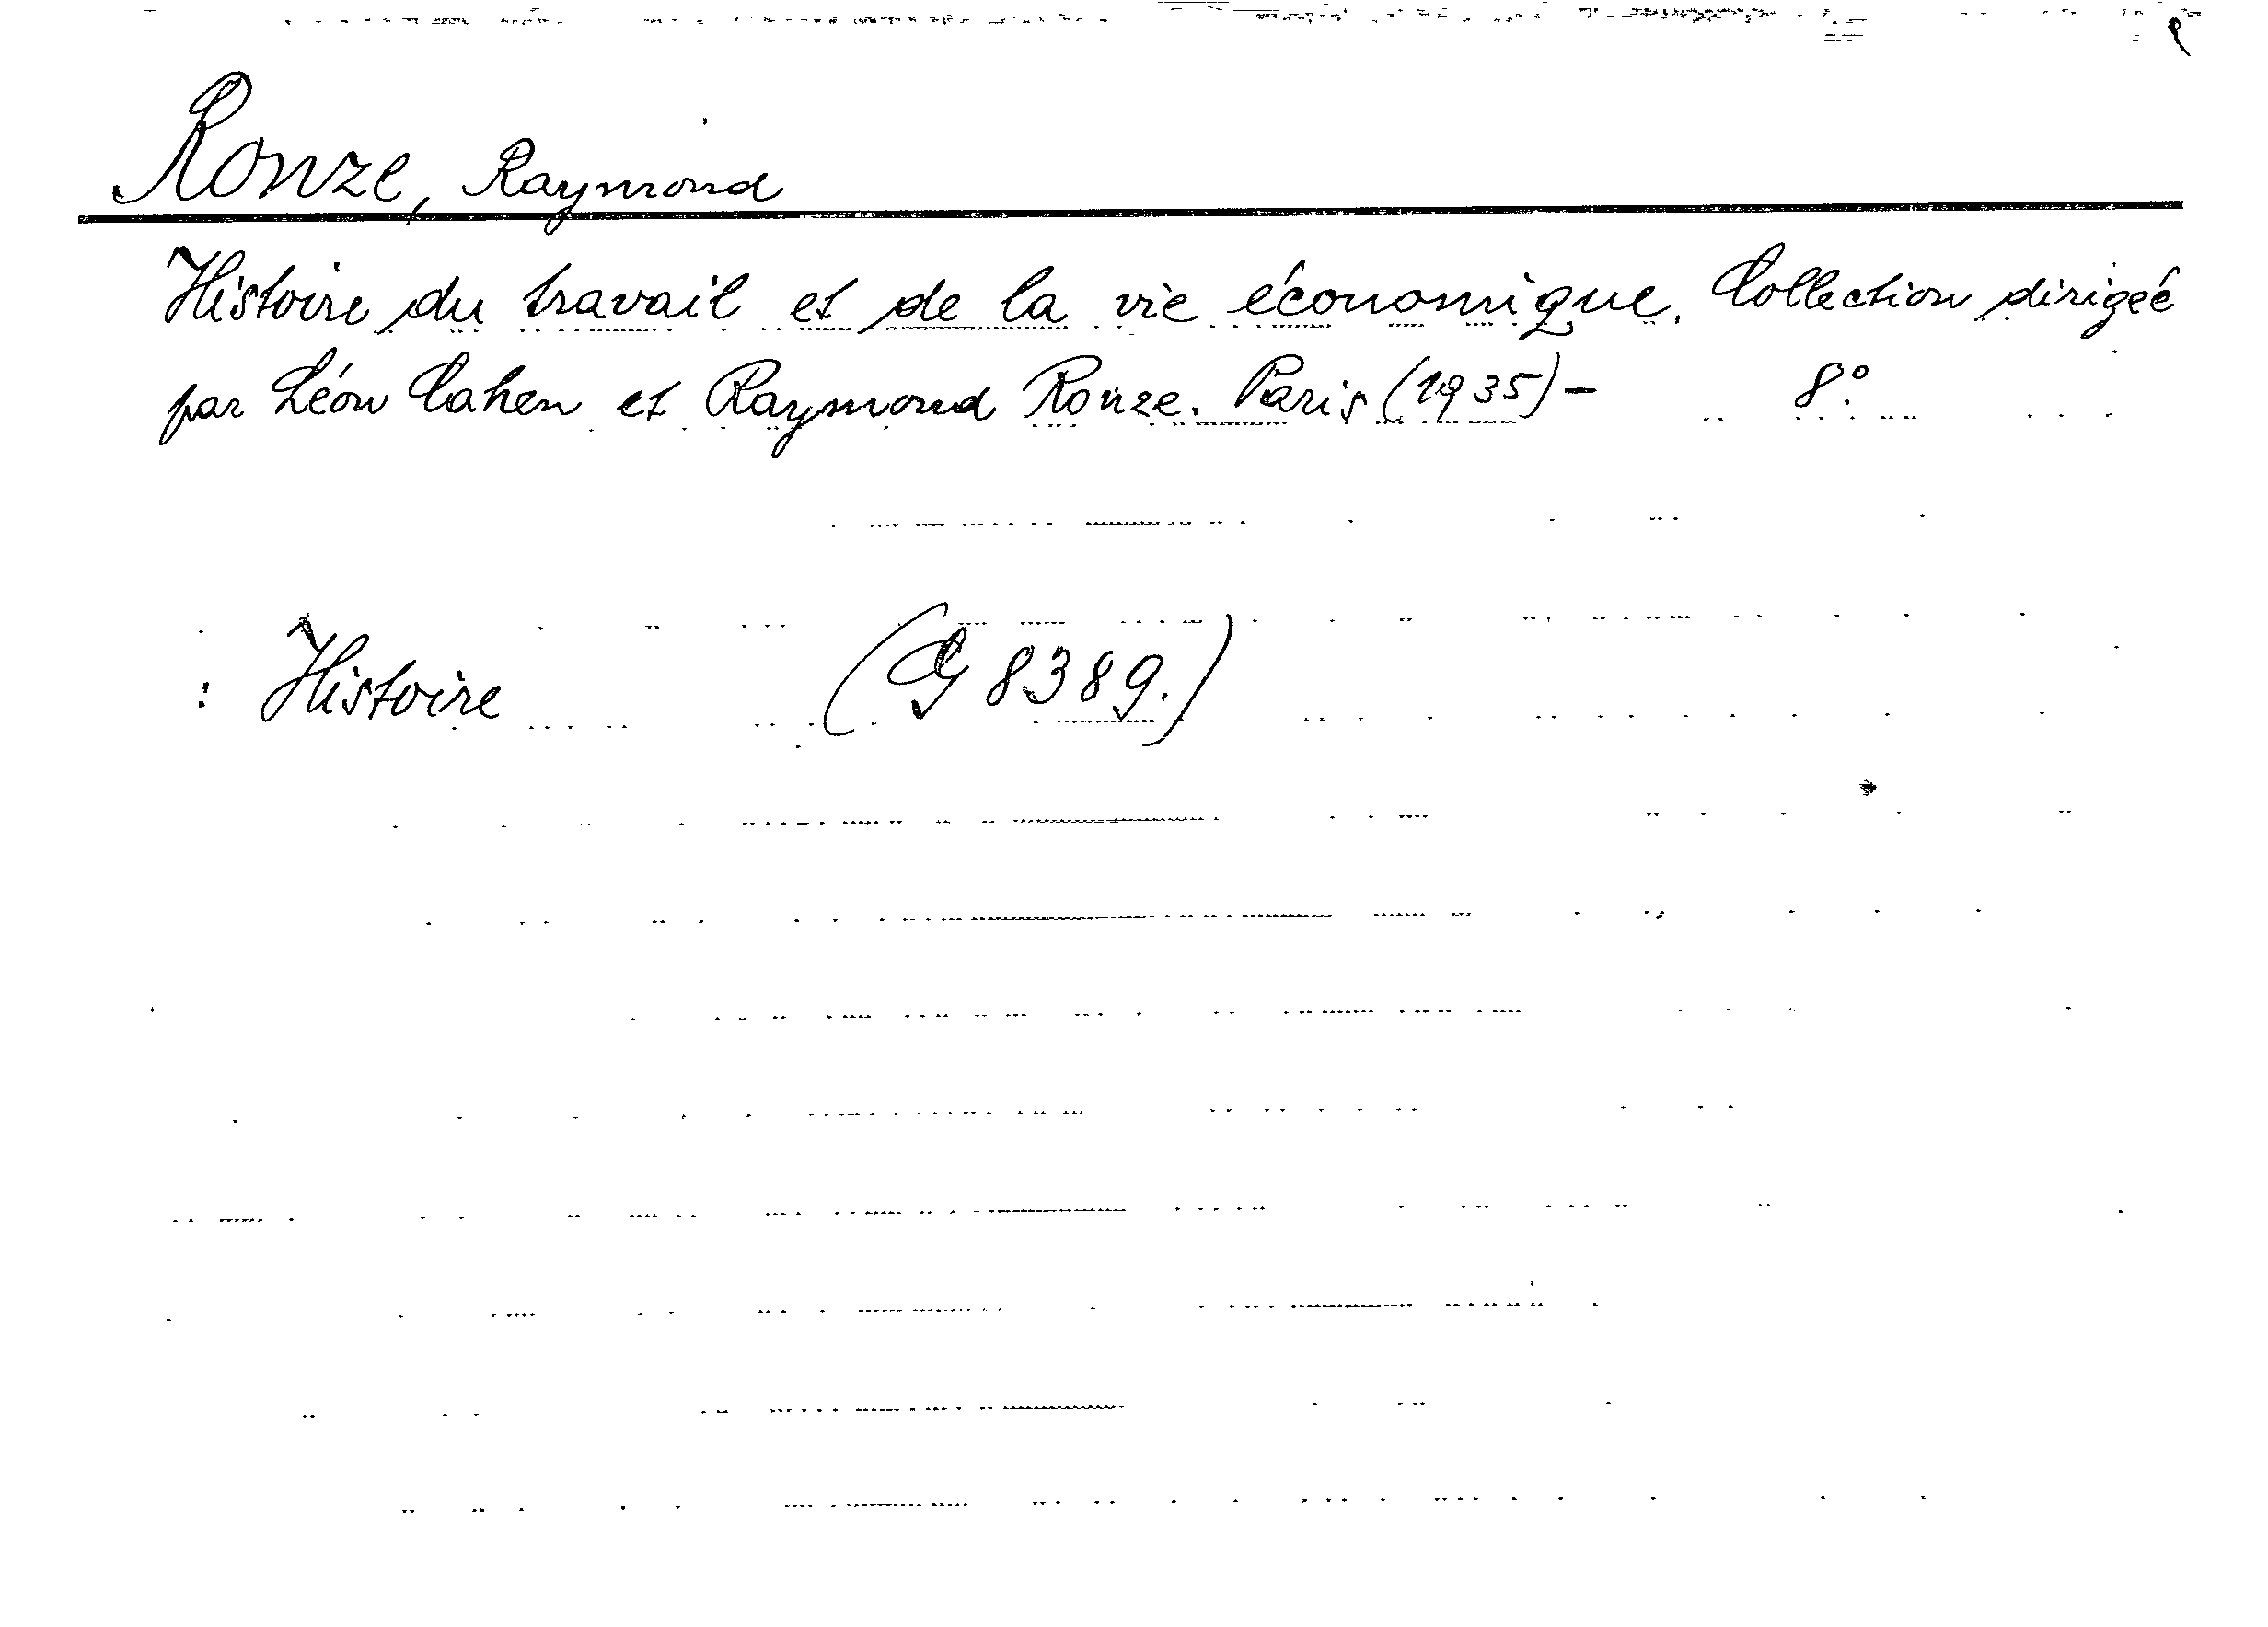 Ronze, Raymond
Histoire du travail et de la vie économique. Collection dirigée
par Léon Cahen et Raymond Ronze. Paris (1935)- 8°.
: Histoire (G 8389.)